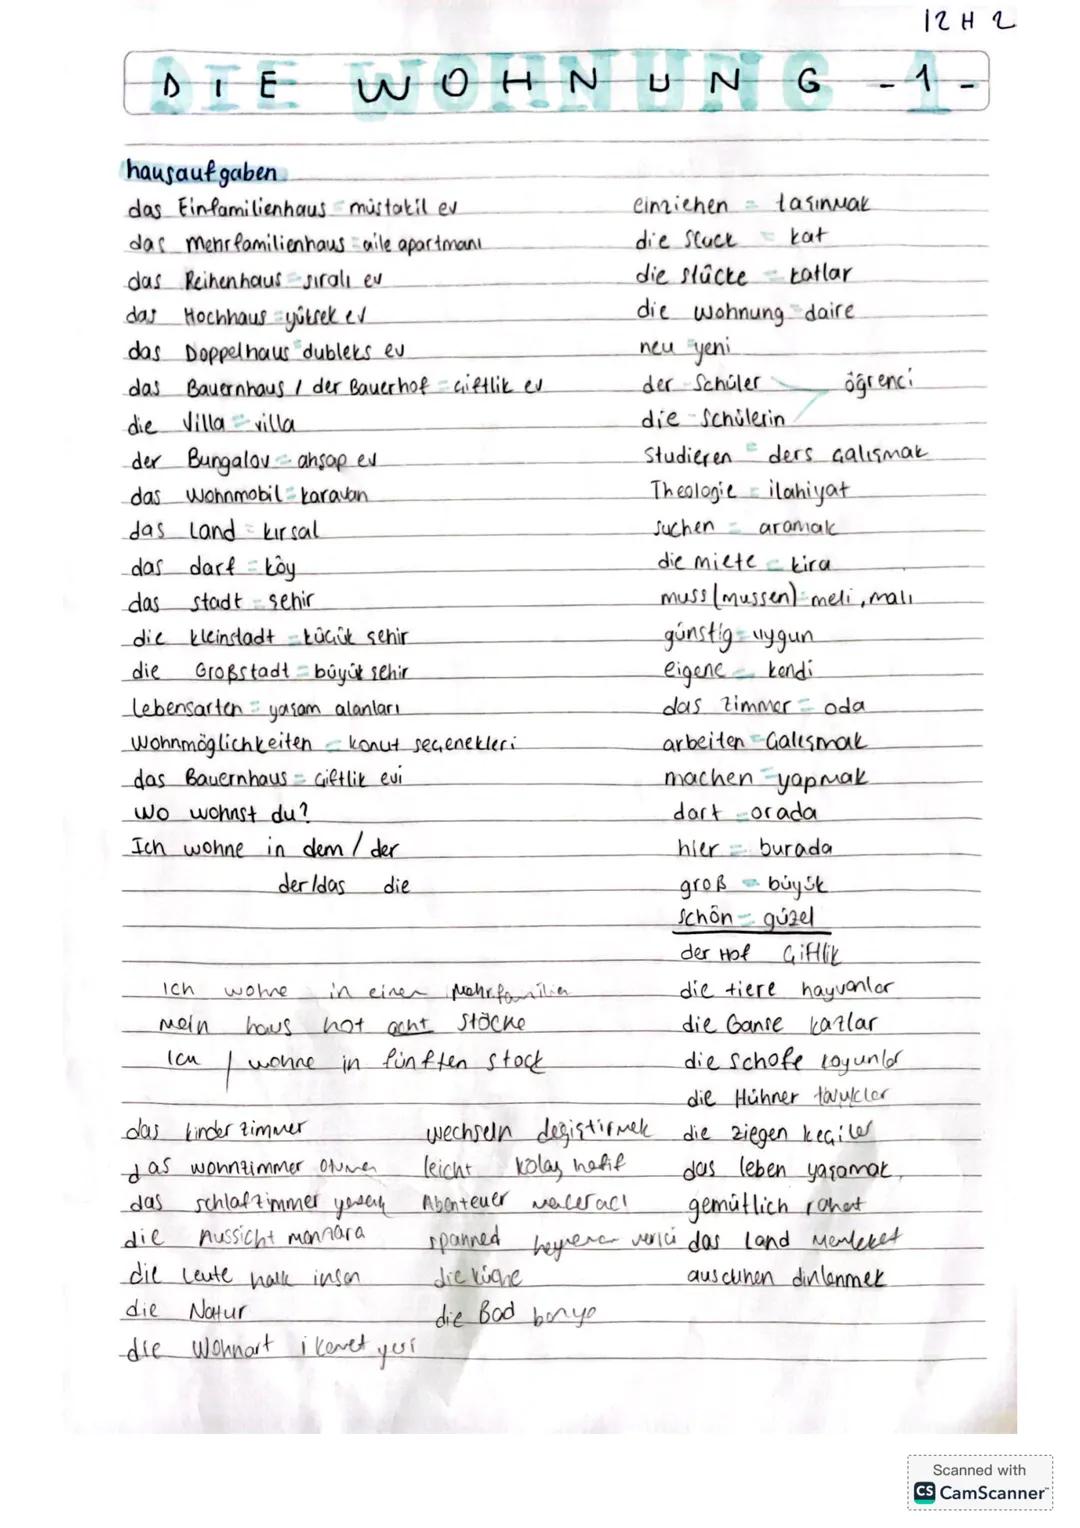 12 H 2
DIE WOHNUNG -1-
hausaufgaben
das Einfamilienhaus = müstakil ev
das Mehrfamilienhaus = aile apartmanı
das Reihenhaus = sıralı ev
das Hochhaus = yüksek ev
das Doppelhaus = dubleks ev
das Bauernhaus / der Bauerhof = çiftlik ev
die Villa = villa
der Bungalov = ahşap ev
das Wohnmobil = karavan
das Land = kırsal
das darf = köy
das stadt = şehir
die kleinstadt = küçük şehir
die Großstadt = büyük şehir
Lebensarten = yaşam alanları
Wohnmöglichkeiten = konut seçenekleri
das Bauernhaus = çiftlik evi
Wo wohnst du?
Ich wohne in dem / der
der/das die
einziehen = taşınmak
die stuck = kat
die stücke = katlar
die wohnung = daire
neu = yeni
der Schüler öğrenci
die Schülerin
Studieren = ders çalışmak
Theologie = ilahiyat
suchen = aramak
die miete = kira
muss (mussen) = meli, malı
günstig = uygun
eigene = kendi
das zimmer = oda
arbeiten = çalışmak
machen = yapmak
dart = orada
hier = burada
groß = büyük
schön = güzel
der Hof çiftlik
die tiere hayvanlar
die Ganse kazlar
die schafe koyunlar
die Hühner tavuklar
die ziegen keçiler
das leben yaşamak
gemütlich rahat
das Land Memleket
dinlenmek
Ich wohne in einen Mehrfamilien
Mein haus hat acht stöcke
Ich / wohne in fünften stock
das kinderzimmer
das wohnzimmer oturma
das schlafzimmer
die Aussicht manzara
die Leute halk insan
die Natur
die Wohnart ikamet yeri
wechseln değiştirmek
leicht kolay hafif
Abenteuer maceracı
spanned heyecan verici
die küche
die Bad banyo
Scanned with
CS CamScanner